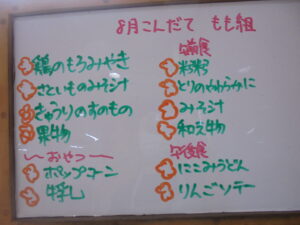 8月こんだて もも組
鶏のもろみやき
さといものみそ汁
きゅうりのすのもの
果物
〜おやつ〜
ポップコーン
牛乳
午前食
粉粥
とりのやわらかに
みそ汁
和え物
午後食
にこみうどん
りんごソテー